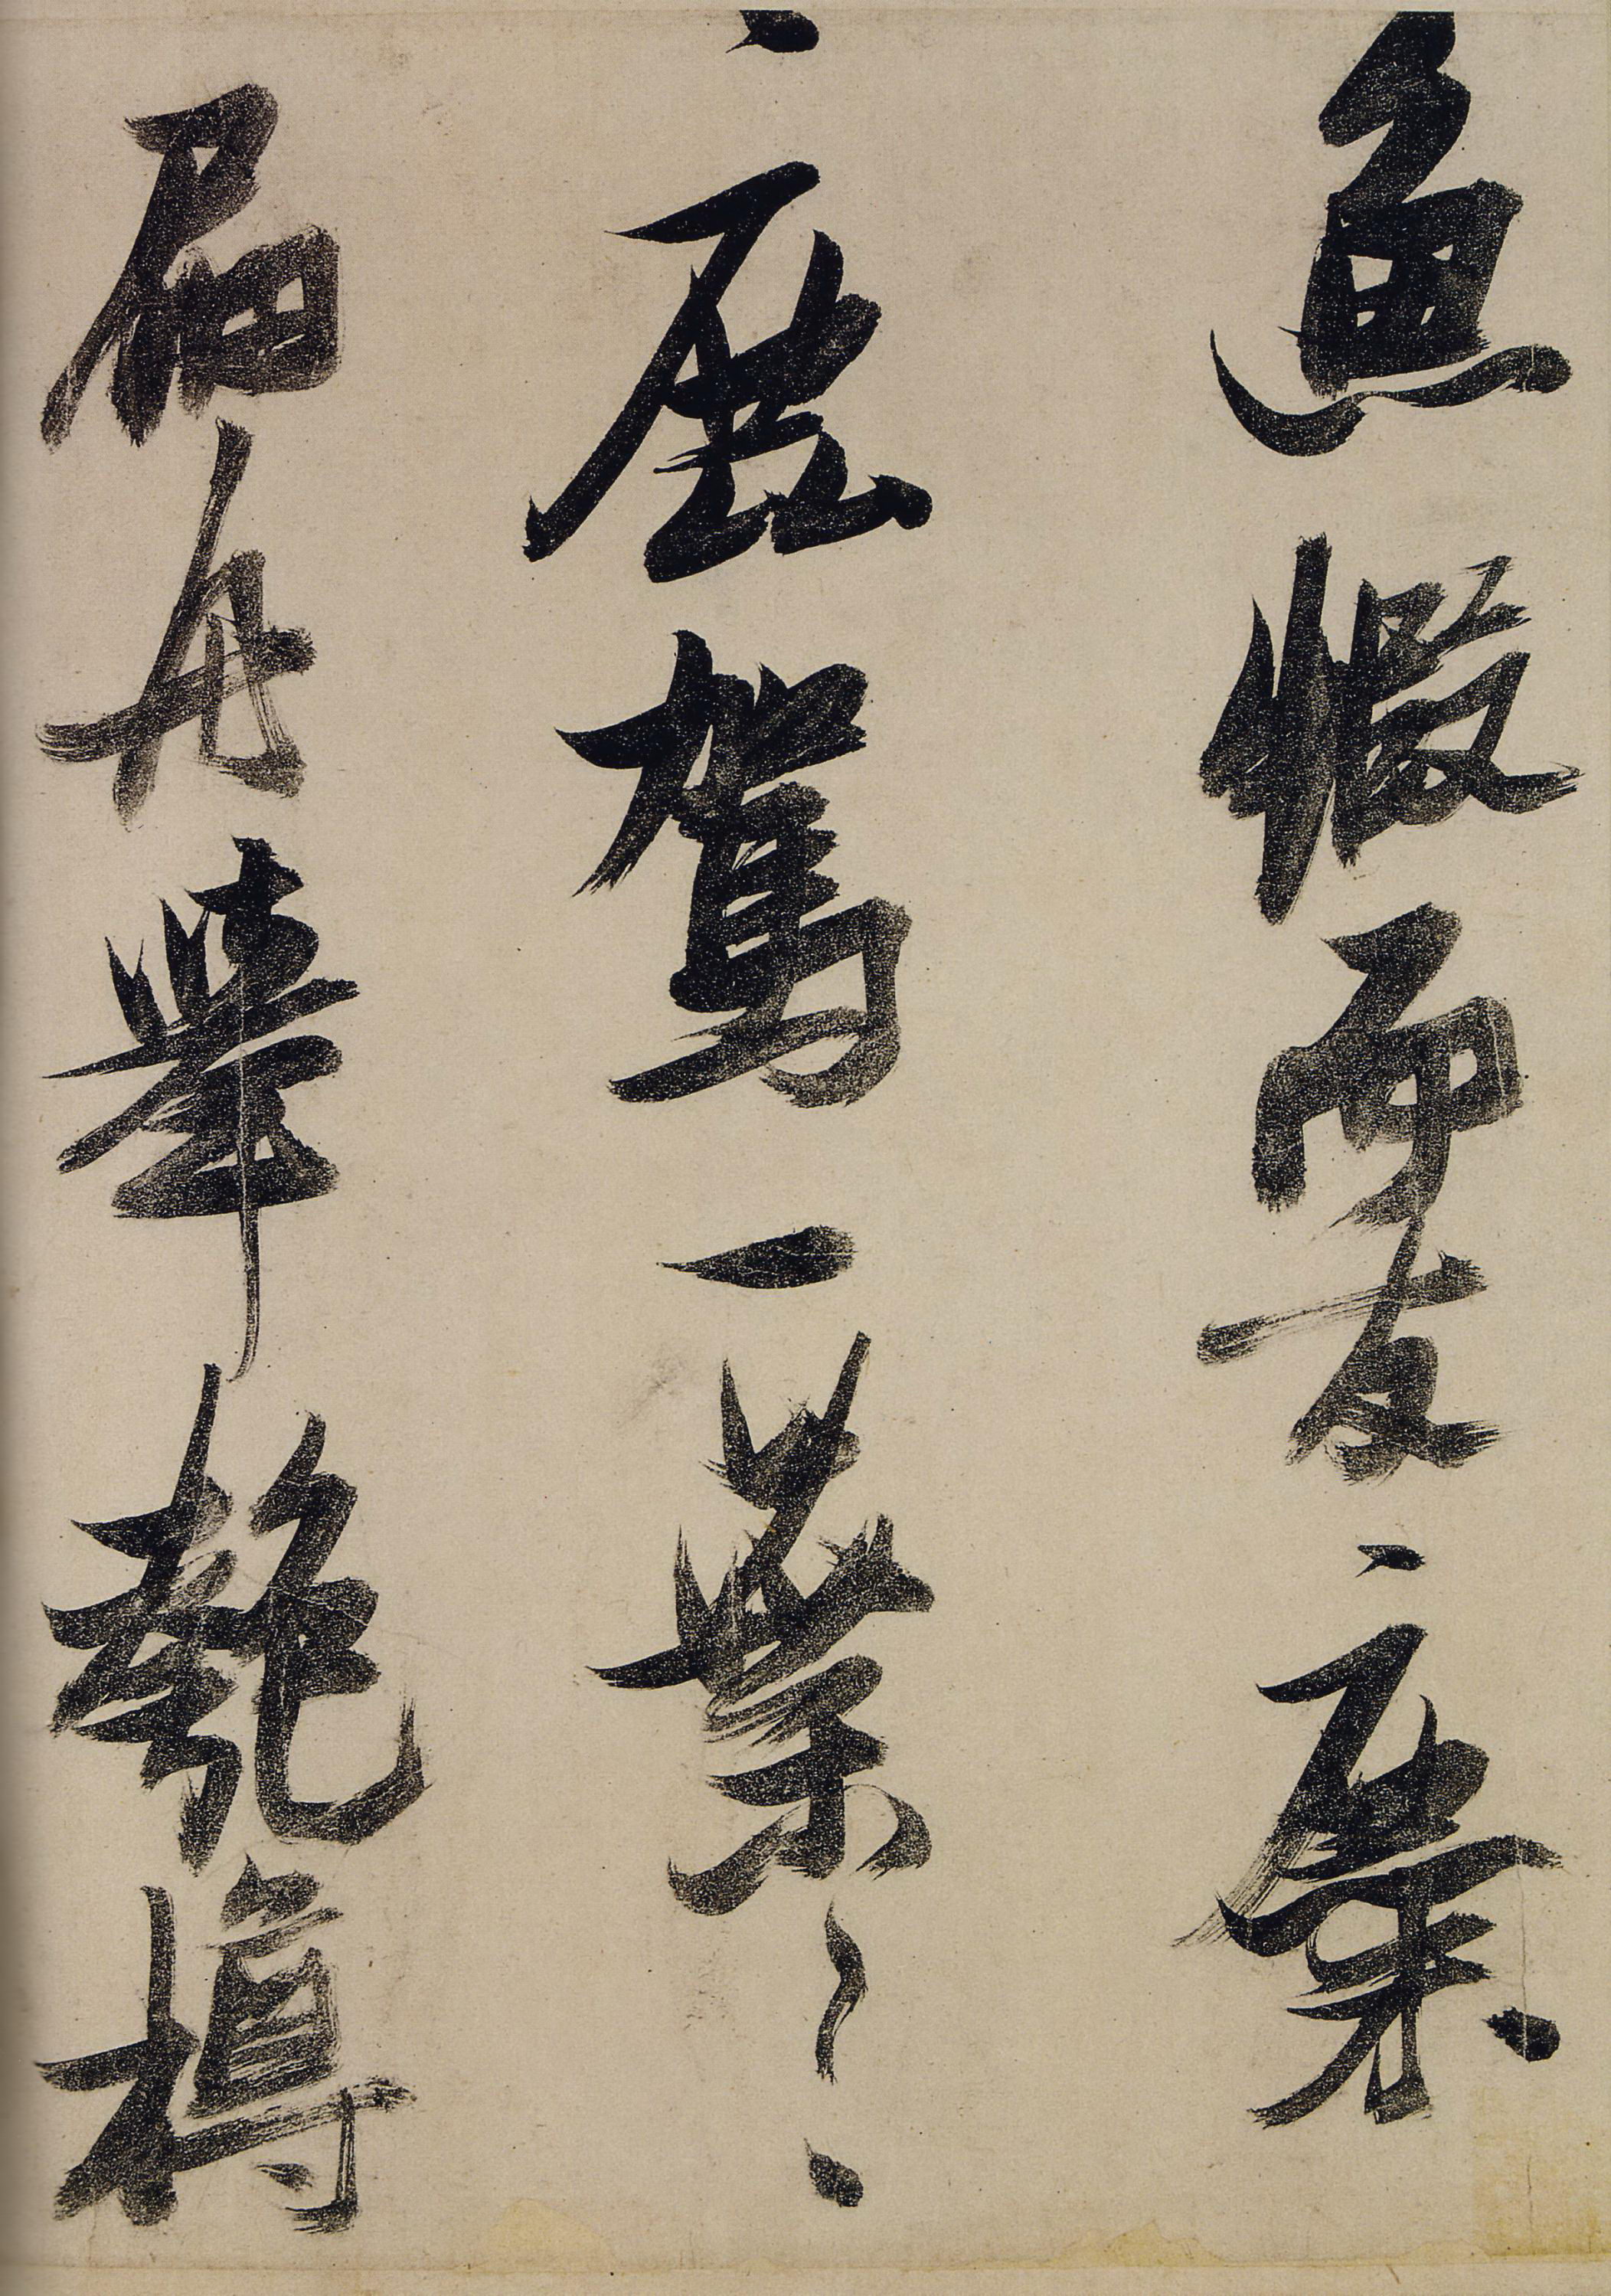 魚蝦而友麋
鹿駕一葉之
扁舟舉匏樽